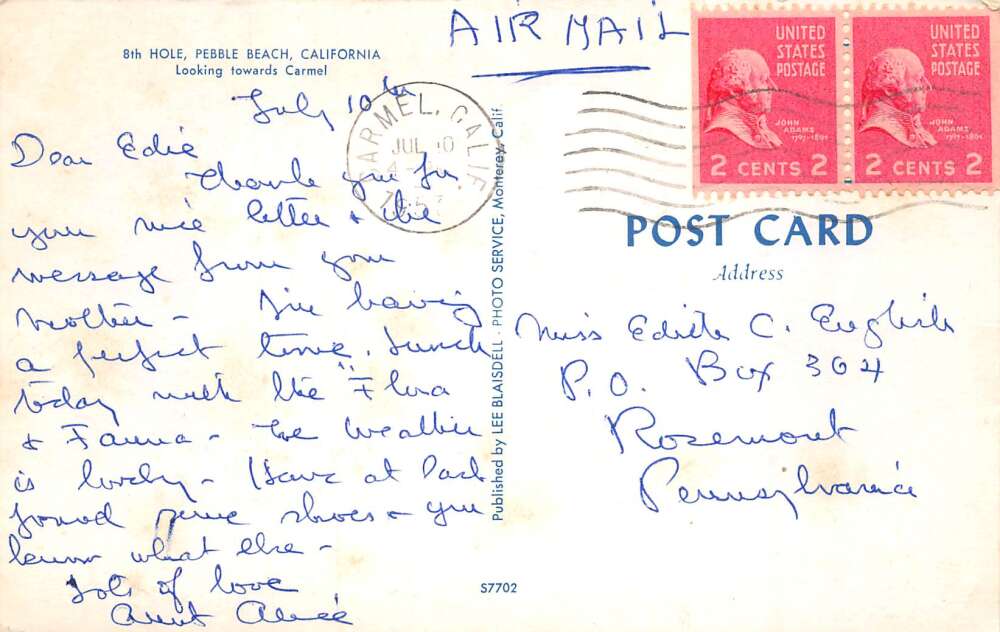 8th HOLE, PEBBLE BEACH, CALIFORNIA
Looking towards Carmel
July 10th
Dear Edie
Thank you for
your nice letter & the
message from your
mother - I'm having
a perfect time. Lunch
today with the "Flora
& Fauna - The weather
is lovely - Have at last
found some shoes & you
know what else -
Lots of love
Aunt Alice
Published by LEE BLAISDELL - PHOTO SERVICE, Monterey, Calif.
S7702
AIR MAIL
CARMEL, CALIF.
JUL 10
UNITED
STATES
POSTAGE
JOHN
ADAMS
1797-1801
2 CENTS 2
UNITED
STATES
POSTAGE
JOHN
ADAMS
1797-1801
2 CENTS 2
POST CARD
Address
Miss Edith C. English
P.O. Box 304
Rosemont
Pennsylvania